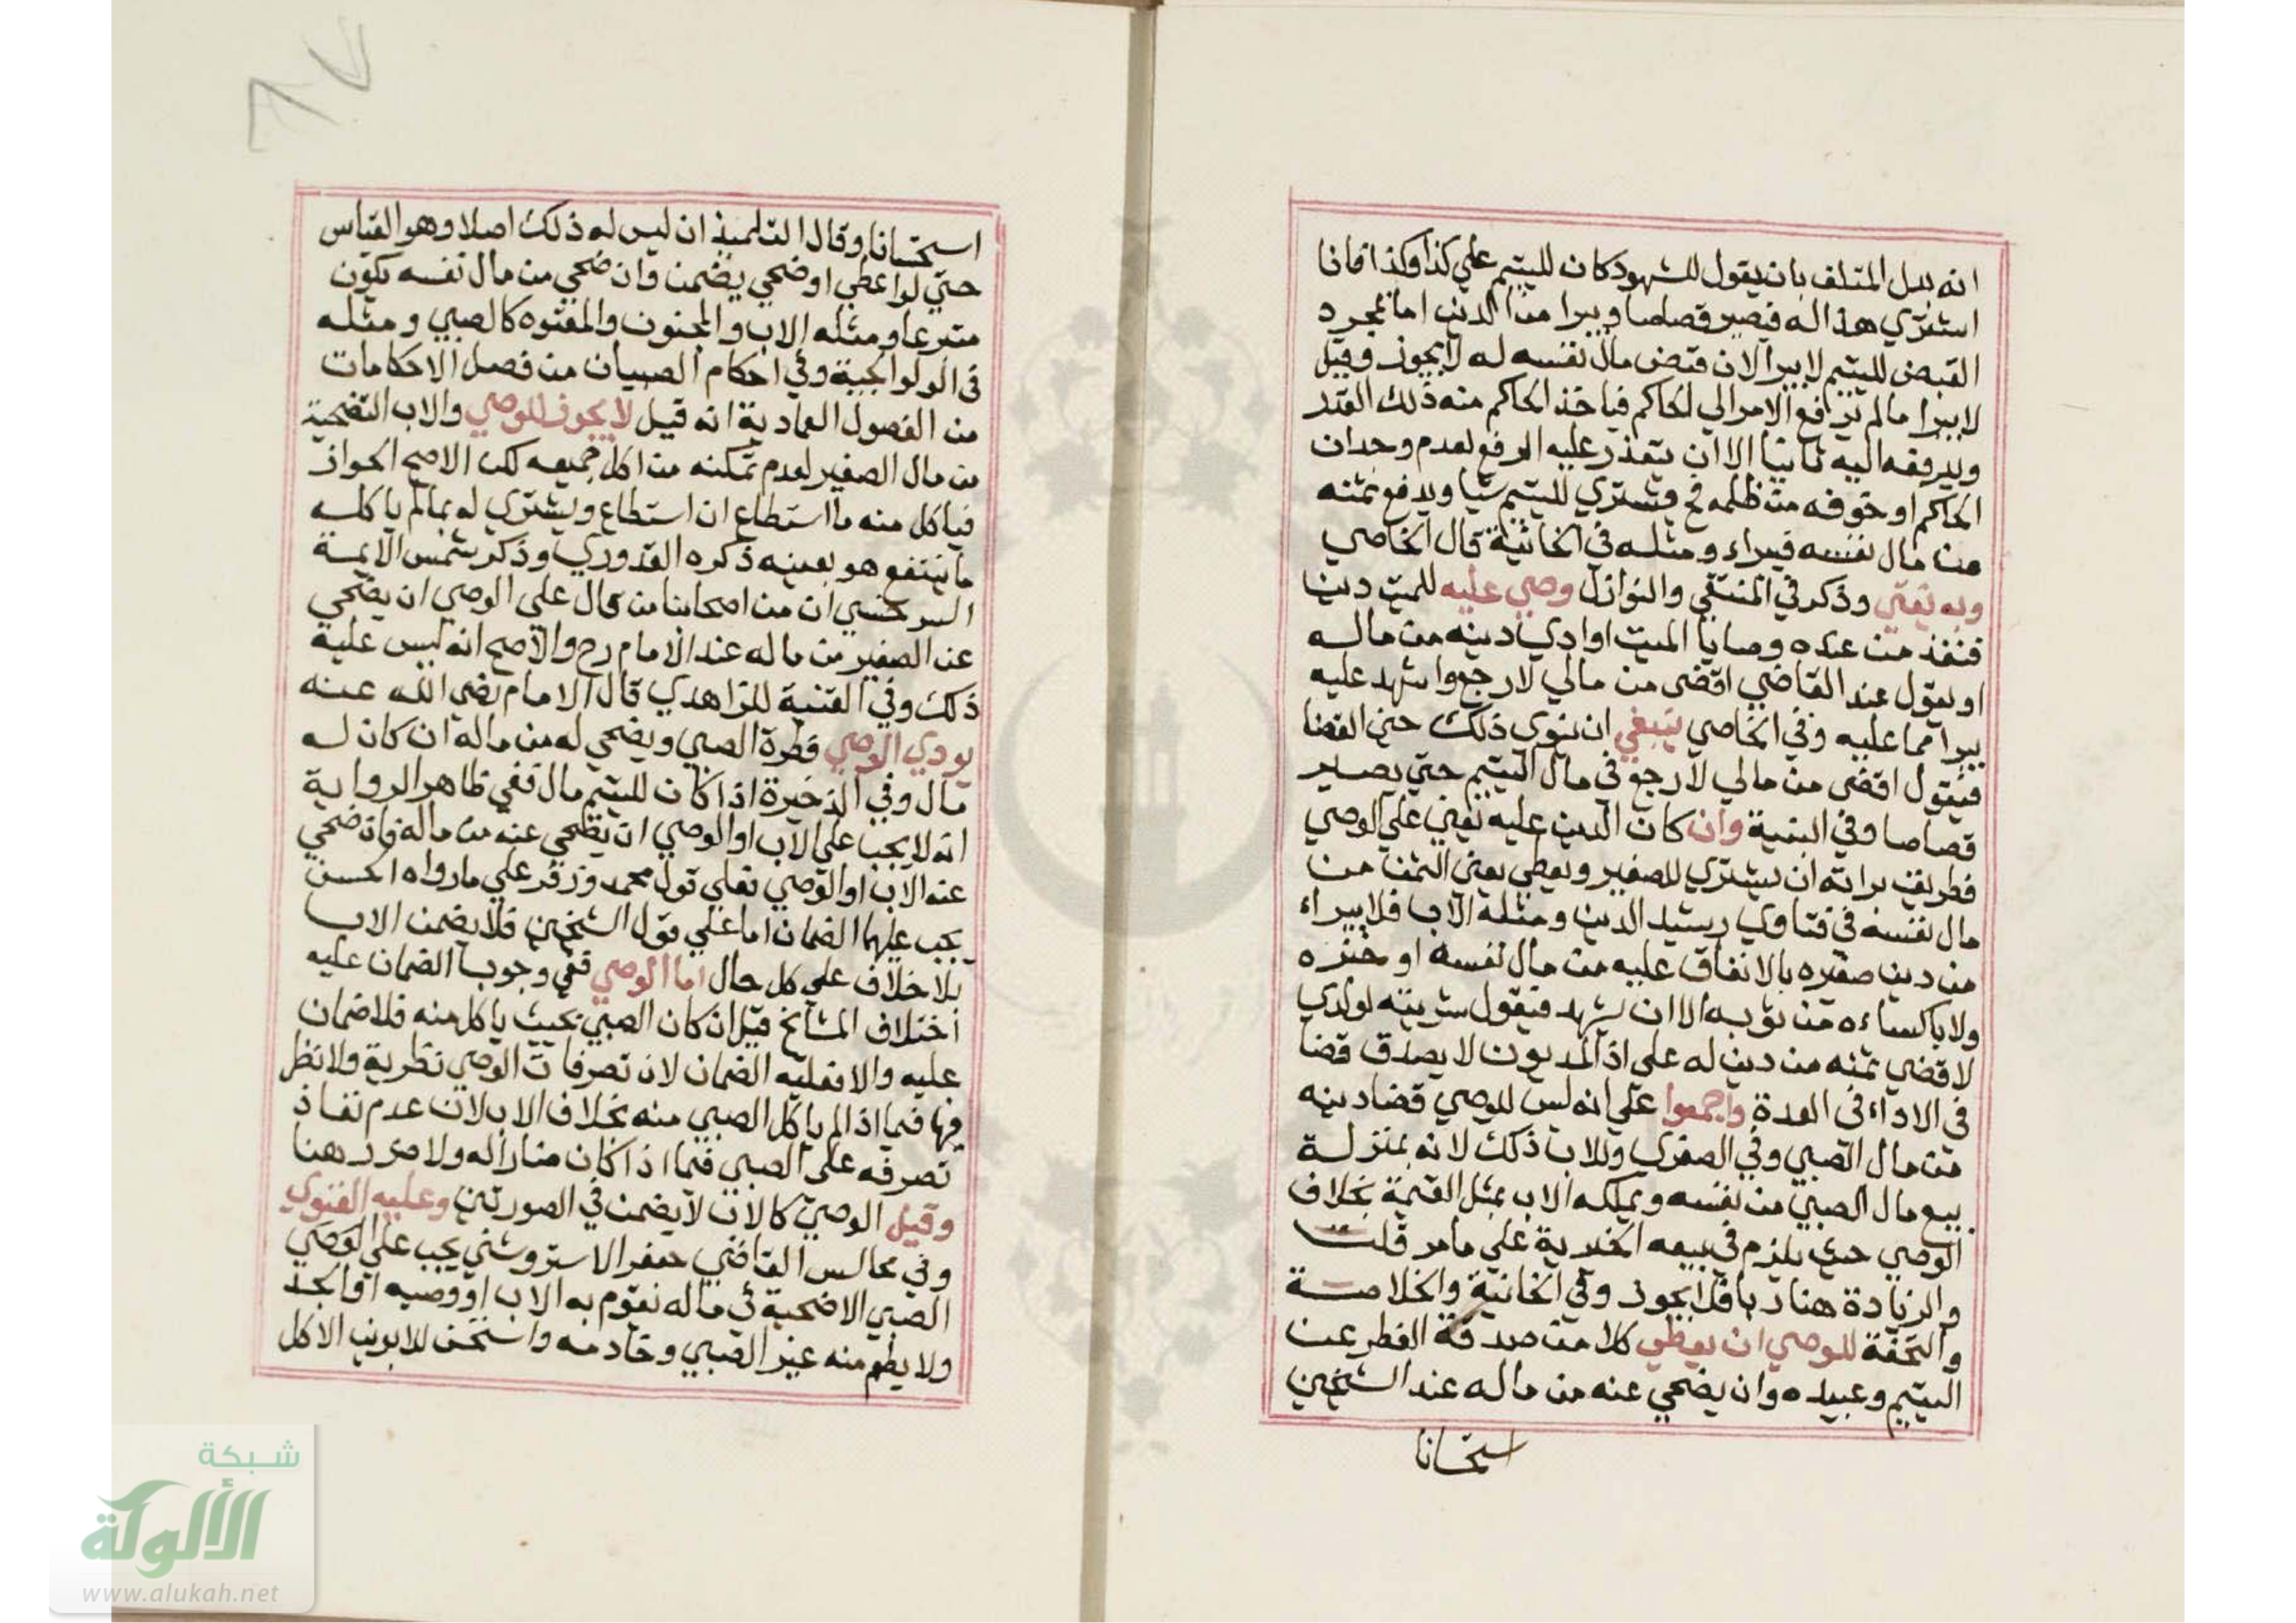 انه بدل المتلف بان يقول للشهود كان لليتيم علي كذا وكذا فانا
اشتري هذا له فيصير قصاصا ويبرا من الدين اما بمجرد
القبض لليتيم لا يبرا لان قبض مال نفسه له لا يجوز وقيل
لا يبرا مالم يرافع الامر الي الحاكم فياخذ الحاكم منه ذلك القدر
ويدفعه اليه ثانيا الا ان يتعذر عليه الرفع لعدم وجدان
الحاكم او خوفه من ظلمه فح يشتري لليتيم شيا ويدفع ثمنه
من مال نفسه فيبراء ومثله في الخانية قال الخاصي
وبه يفتي وذكر في المنتقي والنوازل وصي عليه للميت دين
فنفذ من عنده وصايا الميت او ادي دينه من ماله
او يقول عند القاضي اقضي من مالي لارجع واشهد عليه
يبرا مما عليه وفي الخاصي ينبغي ان ينوي ذلك حين القضا
فيقول اقضي من مالي لارجع في مال اليتيم حتي يصير
قصاصا وفي اليتيمة وان كان الدين عليه يعني علي الوصي
فطريق براته ان يشتري للصغير ويعطي يعني الثمن من
مال نفسه في فتاوي رشيد الدين ومثله الاب فلا يبراء
من دين صغيره بالانفاق عليه من مال نفسه او خبزه
ولا باكساءه من ثوبه الا ان يشهد فيقول شريته لولدي
لاقضي ثمنه من دين له علي اذ المديون لا يصدق قضا
في الاداء في العدة واجمعوا علي انه ليس للوصي قضا دينه
من مال الصبي وفي الصغري وللاب ذلك لانه بمنزلة
بيع مال الصبي من نفسه ويملكه الاب بمثل القيمة بخلاف
الوصي حيث يلزم في بيعه الخيرية علي مامر قلت
والزيادة هنا ربا فلا يجوز وفي الخانية والخلاصة
والتحفة للوصي ان يعطي كلا من صدقة الفطر عن
اليتيم وعبيده وان يضحي عنه من ماله عند الشيخين
استحسانا
استحسانا وقال التلميذ ان ليس له ذلك اصلا وهو القياس
حتي لو اعطي او ضحي يضمن وان ضحي من مال نفسه يكون
متبرعا ومثله الاب والمجنون والمعتوه كالصبي ومثله
في الولوالجية وفي احكام الصبيان من فصل الاحكامات
من الفصول العمادية انه قيل لا يجوز للوصي والاب التضحية
من مال الصغير لعدم تمكنه من اكل جميعه لكن الاصح الجواز
فياكل منه ما استطاع ان استطاع ويشتري له بمالم ياكله
ما ينتفع هو بعينه ذكره القدوري وذكر شمس الايمة
السرخسي ان من اصحابنا من قال علي الوصي ان يضحي
عن الصغير من ماله عند الامام رح والاصح انه ليس عليه
ذلك وفي القنية للزاهدي قال الامام رضي الله عنه
يودي الوصي فطرة الصبي ويضحي له من ماله ان كان له
مال وفي الذخيرة اذا كان لليتيم مال ففي ظاهر الرواية
انه لا يجب علي الاب او الوصي ان يضحي عنه من ماله فان ضحي
عنه الاب او الوصي فعلي قول محمد وزفر علي مارواه الحسن
يجب عليهما الضمان اما علي قول الشيخين فلا يضمن الاب
بلا خلاف علي كل حال اما الوصي ففي وجوب الضمان عليه
اختلاف المشايخ قيل ان كان الصبي بحيث ياكل منه فلا ضمان
عليه والا فعليه الضمان لان تصرفات الوصي نظرية ولا نظر
فيها فيما اذا لم ياكل الصبي منه بخلاف الاب لان عدم نفاذ
تصرفه علي الصبي فيما اذا كان ضارا له ولا ضرر هنا
وقيل الوصي كالاب لا يضمن في الصورتين وعليه الفتوي
وفي مجالس القاضي جعفر الاستروشني يجب علي الوصي
الصبي الاضحية في ماله يقوم به الاب او وصيه او الجد
ولا يطعم منه غير الصبي وخادمه واستحسن للابوين الاكل
شبكة
الألوكة
www.alukah.net